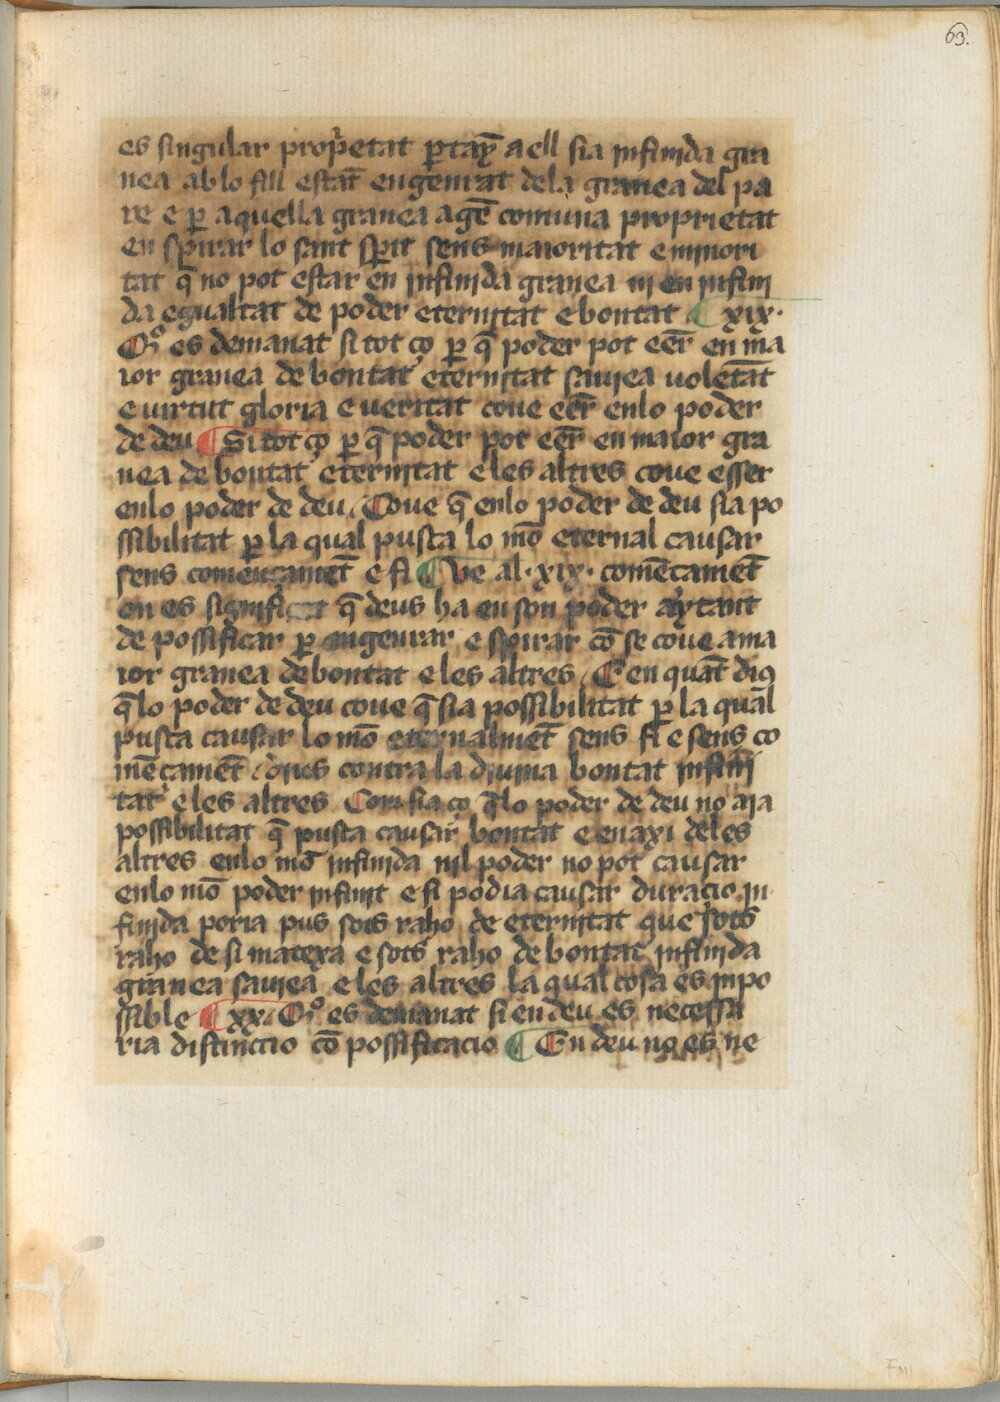 63.
es singular prop̉etat ꝑtay̅ a ell sia infinida gra
nea ab lo fill estat̅ engenrat de la granea del pa
re e ꝑ aquella granea age̅ comuna proprietat
en spirar lo sant sp̅it sens maioritat e minori
tat q̅ no pot estar en infinida granea ni en infini
da egualtat de poder eternitat e bontat ¶ xix·
Q̊ es demanat si tot ço ꝑ q̅ poder pot ee̅r en ma
ior granea de bontat eternitat saviea voletat̅
e virtut gloria e veritat cove ee̅r en lo poder
de deu ¶ Si tot ço ꝑ q̅ poder pot ee̅r en maior gra
nea de bontat eternitat e les altres cove esser
en lo poder de deu / Cove q̅ en lo poder de deu sia po
ssibilitat ꝑ la qual pusca lo mo̅ eternal causar
sens començamet̅ e fi ¶ Ve al ·xix· come̅camet̅
on es significat q̅ deus ha en son poder aytant
de possificar ꝑ engenrar e spirar co̅ se cove a ma
ior granea de bontat e les altres / E en quat̅ diꝯ
q̅ lo poder de deu cove q̅ sia possibilitat ꝑ la qual
pusca causar lo mo̅ eternalmet̅ sens fi e sens co
me̅camet̅ / dius contra la divina bontat infini
tat e les altres Com sia ço q̅ lo poder de deu no aia
possibilitat q̅ pusca causar bontat e en axi de les
altres en lo mo̅ infinida nil poder no pot causar
en lo mo̅ poder infinit e si podia causar duracio in
finida poria pus sots raho de eternitat que sots
raho de si matexa e sots raho de bontat infinida
granea saviea e les altres la qual cosa es inpo
ssible ¶ xx· Q̊ es demanat si en deu es necessa
ria distinccio co̅ possificacio ¶ En deu no es ne